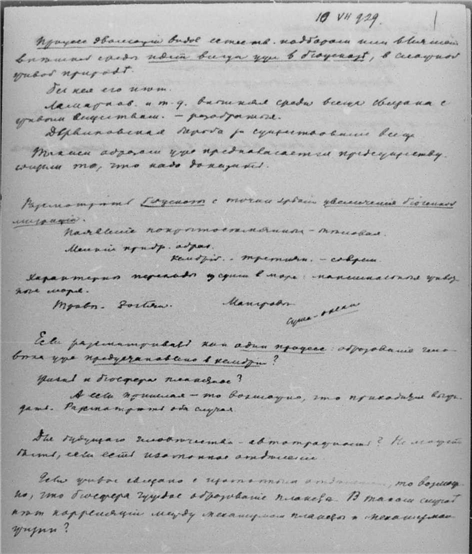 10 VII 929.
Процесс эволюции видов естеств. подбором или влиянием
внешней среды идет всегда уже в биосфере, в сложной
живой природе
без нея его нет.
Ламарков. и т.д. внешняя среда всегда связана с
живым веществом. – разобраться.
Дарвиновская борьба за существование всегда
Таким образом уже предполагается предсуществу-
ющим то, что надо доказать.
Рассмотреть биосферу с точки зрения увеличения биогенной
миграции.
Появление покрытосемянных – меловая.
Морские прибр. образ.
кембрий – третичн. – соврем.
Характерны переходы суши в море: млекопитающие живот-
ные моря.
Травы. Мангровы
суша – океан
Если рассматривать как один процесс: образование чело-
века уже предуказано в кембрии?
жизнь и биосфера планетное?
А если пришлая – то возможно, что приходила всегда
Рассмотреть оба случая.
Для будущего человечества – автотрофность? Не может
быть, если есть изотопное отделение.
Если живое связано с изотопным отделением, то возмож-
но, что биосфера чуждое образование планеты. В таком случае
нет корреляции между механизмом планеты и механизмом
жизни?